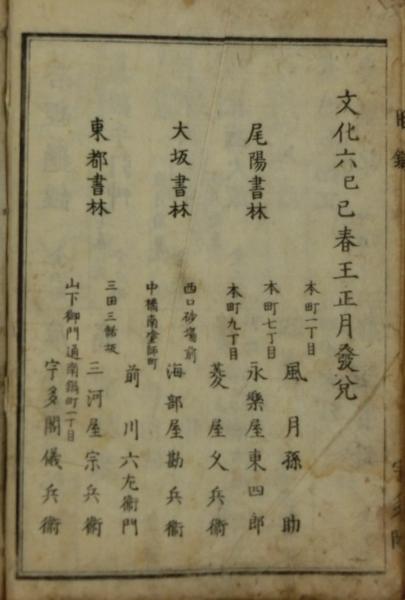 文化六己巳春王正月發兌
尾陽書林
本町一丁目
風月孫助
本町七丁目
永樂屋東四郎
本町九丁目
菱屋久兵衛
大坂書林
西口砂場前
海部屋勘兵衛
東都書林
中橋南塗師町
前川六左衛門
三田三話坂
三河屋宗兵衛
山下御門通南鍋町一丁目
宇多閣儀兵衛